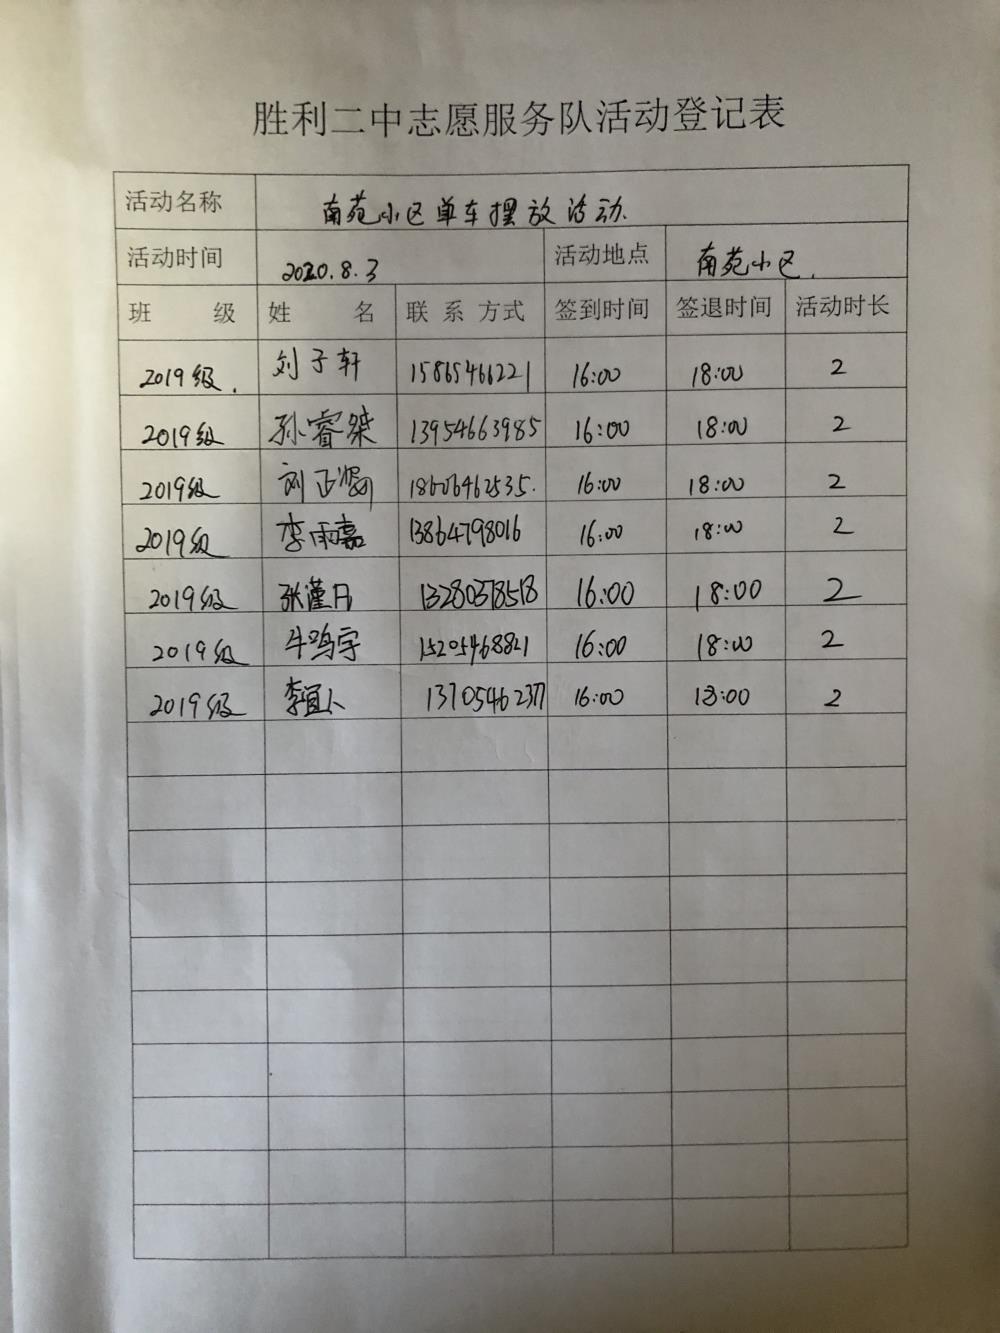 胜利二中志愿服务队活动登记表
活动名称 南苑小区单车摆放活动.
活动时间 2020.8.3 活动地点 南苑小区.
班 级 姓 名 联 系 方式 签到时间 签退时间 活动时长
2019级. 刘子轩 15865466221 16:00 18:00 2
2019级 孙睿桀 13954663985 16:00 18:00 2
2019级 刘正 18606462535. 16:00 18:00 2
2019级 李雨嘉 13864798016 16:00 18:00 2
2019级 张瑾月 13280378518 16:00 18:00 2
2019级 牛鸣宇 15205468821 16:00 18:00 2
2019级 李宜人 13705462377 16:00 18:00 2